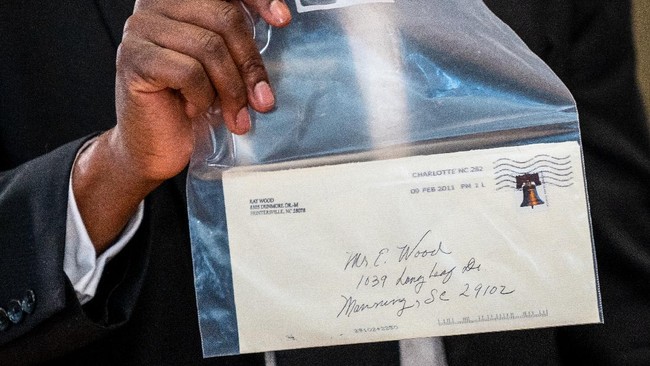 RAY WOOD
HUNTERSVILLE, NC 28078
CHARLOTTE NC 282
09 FEB 2011 PM 1 L
Mrs E. Wood
1039 Long Leaf Dr
Manning, SC 29102